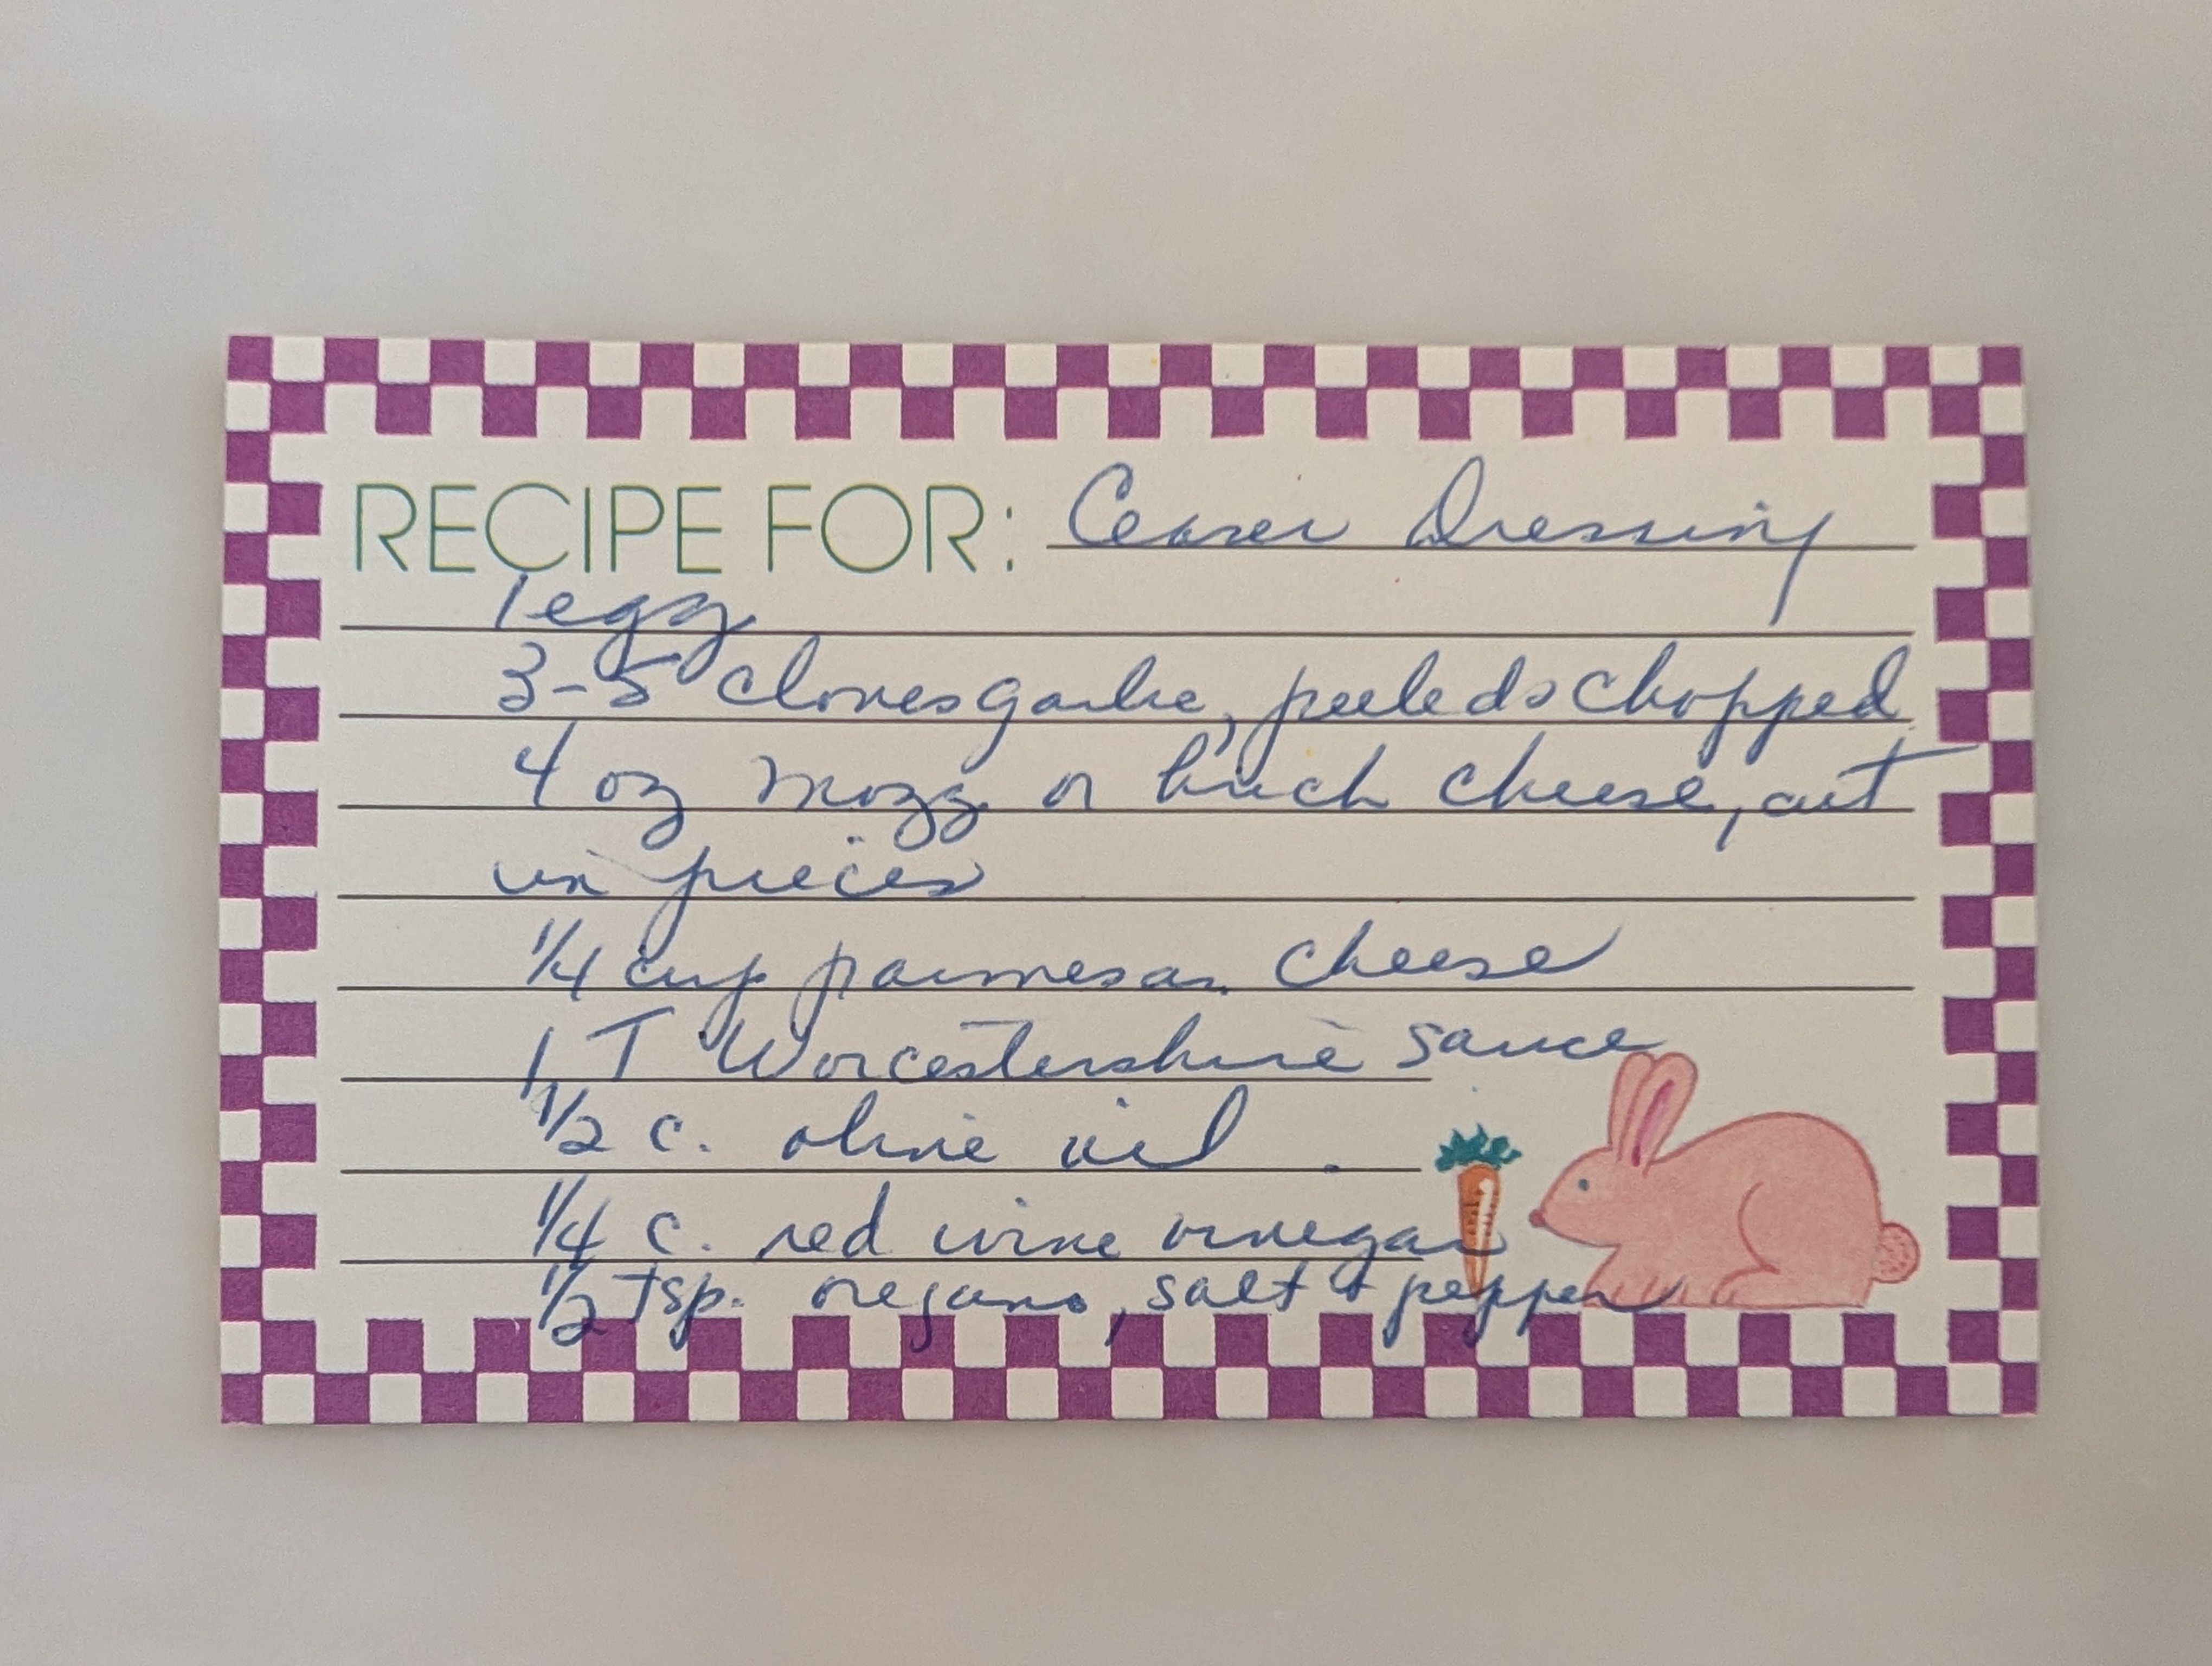 RECIPE FOR: Ceaser Dressing
1 egg
3-5 cloves garlic, peeled & chopped
4 oz mozz or brick cheese, cut
in pieces
1/4 cup parmesan cheese
1 T Worcestershire sauce
1/2 c. olive oil
1/4 c. red wine vinegar
1/2 tsp. oregano, salt + pepper